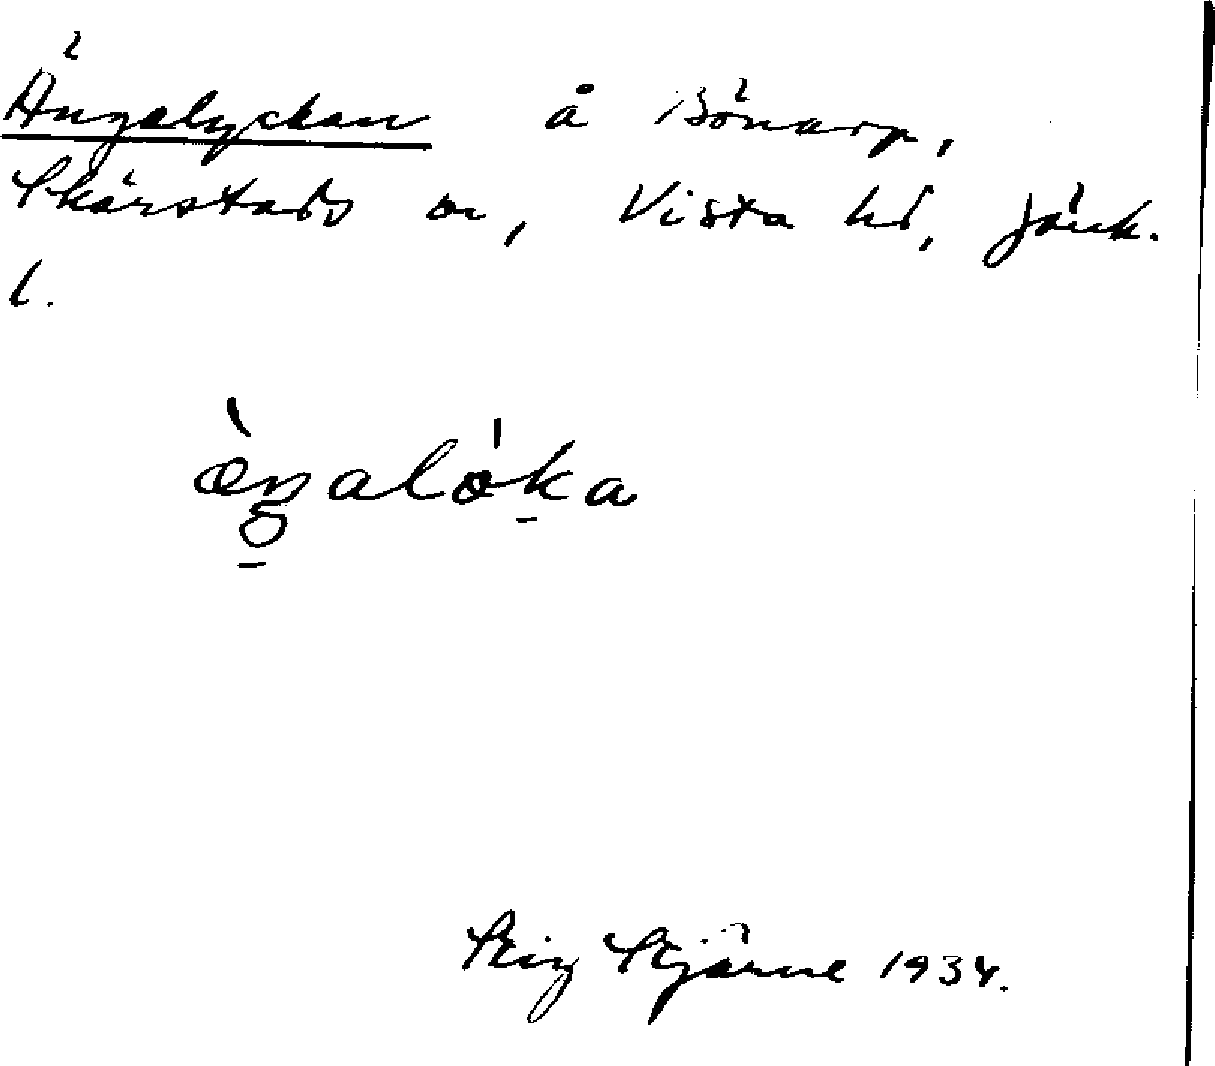 Ängalyckan å Bönarp,
Skärstads sn, Vista hd, Jönk.
l.
æ̀ŋalǿka
Stig Stjärne 1934.